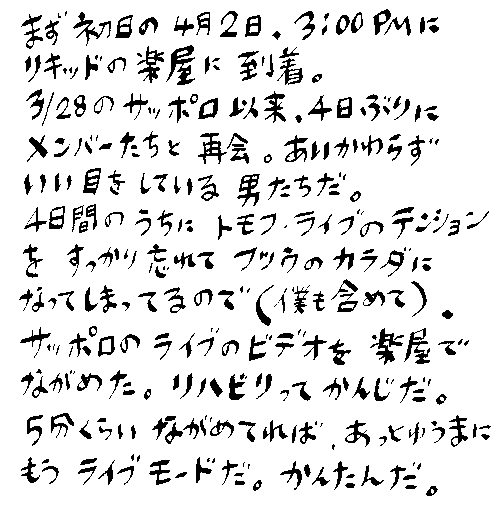 まず初日の4月2日、3:00PMに
リキッドの楽屋に到着。
3/28のサッポロ以来、4日ぶりに
メンバーたちと再会。あいかわらず
いい目をしている男たちだ。
4日間のうちにトモフ・ライブのテンション
をすっかり忘れてフツウのカラダに
なってしまってるので(僕も含めて)。
サッポロのライブのビデオを楽屋で
ながめた。リハビリってかんじだ。
5分くらいながめてれば、あっとゆうまに
もうライブモードだ。かんたんだ。